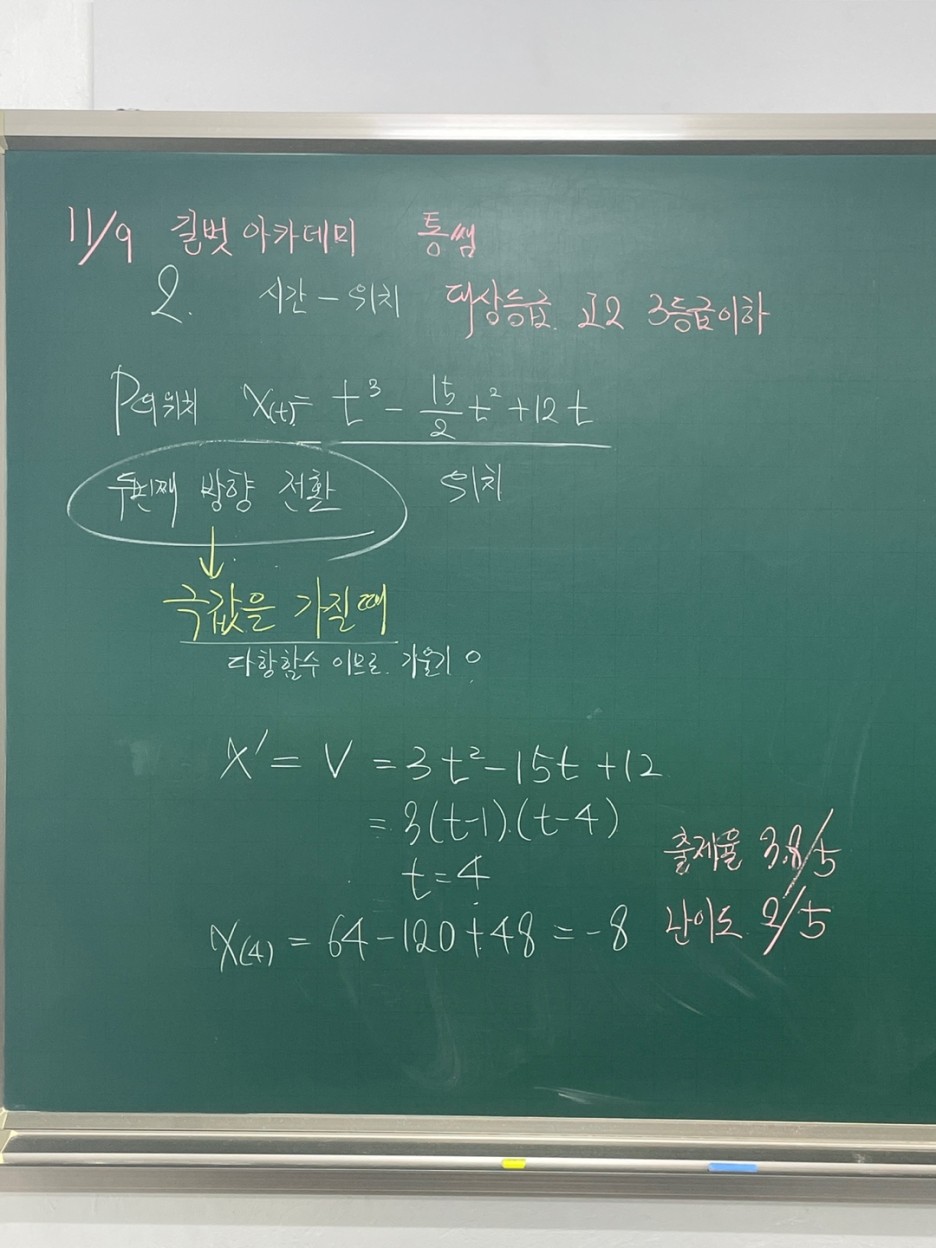 11/9 길벗 아카데미 통쌤
2. 시간 – 위치 대상등급. 고2 3등급이하
P의 위치 X(t)= t³ - 15/2 t² + 12t
두번째 방향 전환 위치
↓
극값을 가질때
다항함수 이므로. 기울기 0
X' = V = 3t² - 15t + 12
= 3(t-1)(t-4)
t=4
X(4) = 64 - 120 + 48 = -8
출제율 3.8/5
난이도 2/5